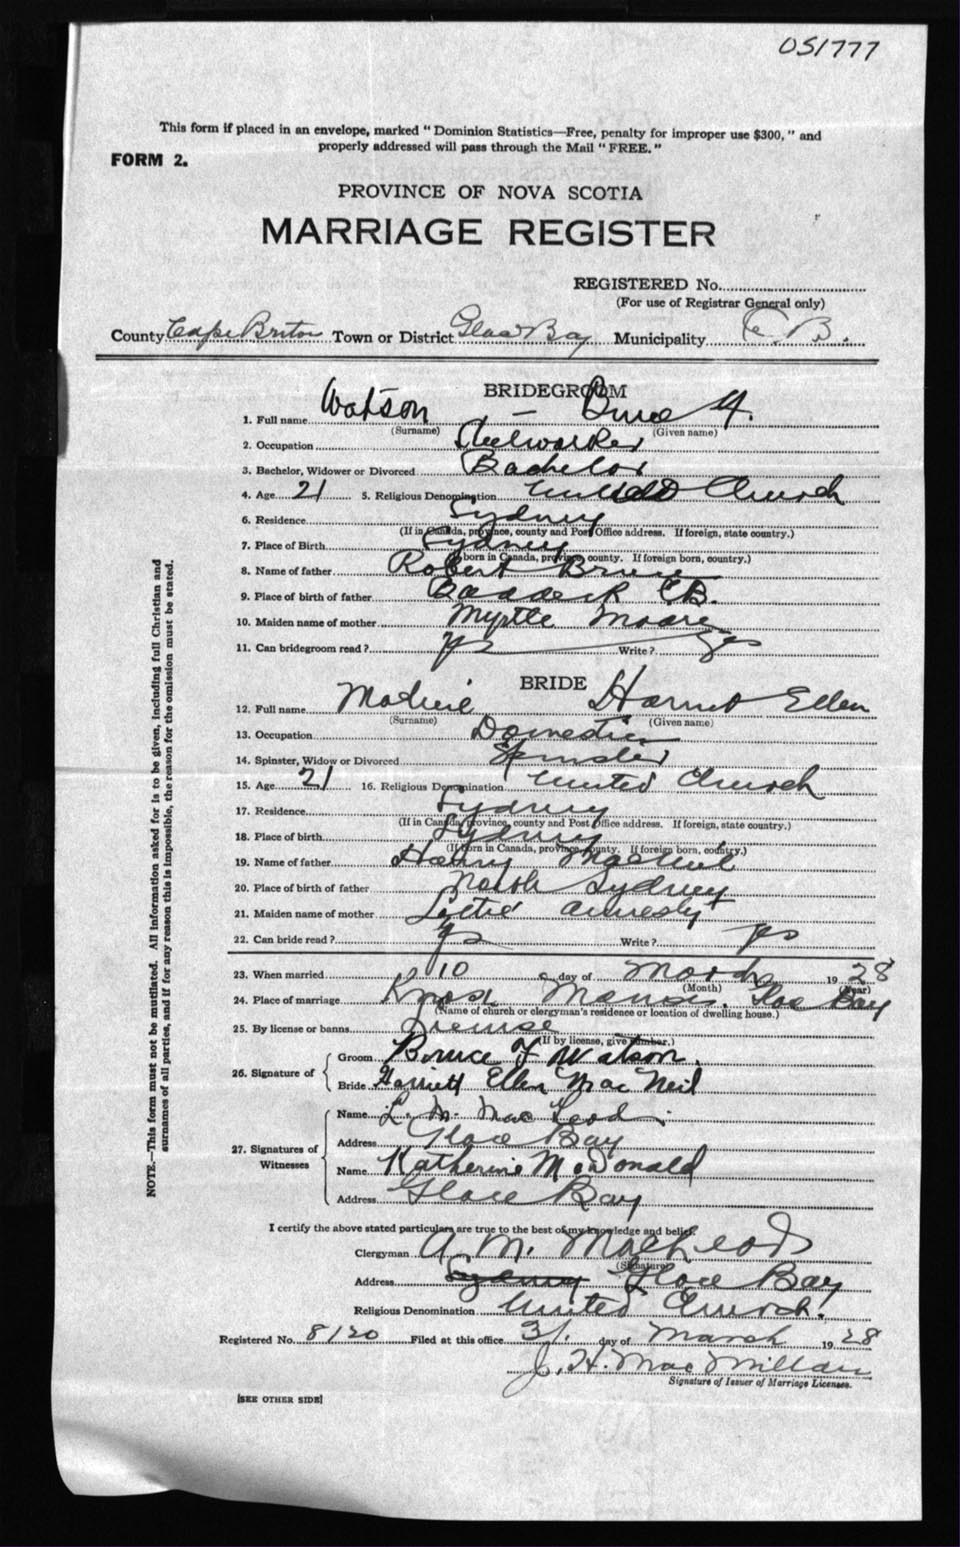 051777
This form if placed in an envelope, marked " Dominion Statistics—Free, penalty for improper use $300, " and
properly addressed will pass through the Mail " FREE. "
FORM 2.
PROVINCE OF NOVA SCOTIA
MARRIAGE REGISTER
REGISTERED No.
(For use of Registrar General only)
County Cape Breton Town or District Glace Bay Municipality C. B.
BRIDEGROOM
1. Full name Watson Bruce
(Surname) (Given name)
2. Occupation Steelworker
3. Bachelor, Widower or Divorced Bachelor
4. Age 21 5. Religious Denomination United Church
6. Residence Sydney
(If in Canada, province, county and Post Office address. If foreign, state country.)
7. Place of Birth Sydney
(If born in Canada, province, county. If foreign born, country.)
8. Name of father Robert Bruce
9. Place of birth of father Baddeck C.B.
10. Maiden name of mother Myrtle Moore
11. Can bridegroom read? yes Write? yes
BRIDE
12. Full name Harriet Ellen
(Surname) (Given name)
13. Occupation Domestic
14. Spinster, Widow or Divorced Spinster
15. Age 21 16. Religious Denomination United Church
17. Residence Sydney
(If in Canada, province, county and Post Office address. If foreign, state country.)
18. Place of birth Sydney
(If born in Canada, province, county. If foreign born, country.)
19. Name of father Harry MacNeil
20. Place of birth of father North Sydney
21. Maiden name of mother
22. Can bride read? yes Write? yes
23. When married 10 day of March 1928
(Month) (Year)
24. Place of marriage Knox Manse, Glace Bay
(Name of church or clergyman's residence or location of dwelling house.)
25. By license or banns License
(If by license, give number.)
26. Signature of
Groom Bruce F Watson.
Bride Harriett Ellen MacNeil
27. Signatures of Witnesses
Name L. M. MacLeod
Address Glace Bay
Name Katherine McDonald
Address Glace Bay
I certify the above stated particulars are true to the best of my knowledge and belief.
Clergyman A. M. MacLeod
(Signature)
Address Sydney Glace Bay
Religious Denomination United Church.
Registered No. 8120 Filed at this office 31. day of March 1928
J. H. MacMillan
Signature of Issuer of Marriage Licenses.
[SEE OTHER SIDE]
NOTE.—This form must not be mutilated. All information asked for is to be given, including full Christian and
surnames of all parties, and if for any reason this is impossible, the reason for the omission must be stated.